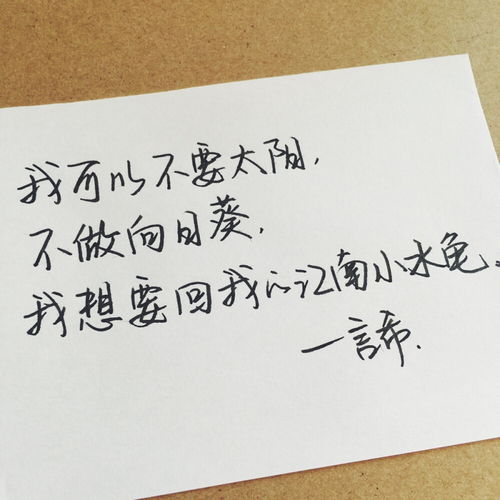 我可以不要太阳，
不做向日葵，
我想要回我的江南小水龟。
一言希.